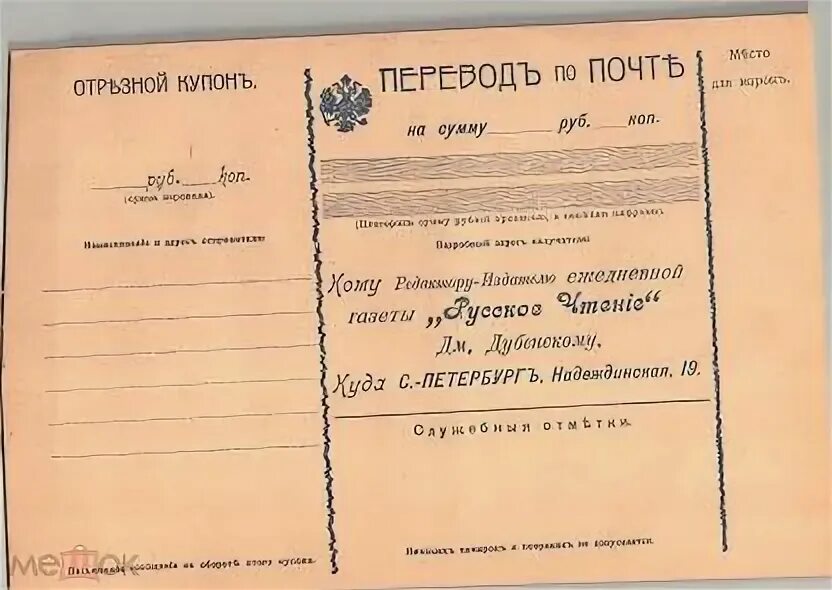 ОТРѢЗНОЙ КУПОНЪ.
руб. коп.
(сумма перевода).
Наименованіе и адресъ отправителя
Письменное сообщеніе на оборотѣ этого купона.
ПЕРЕВОДЪ по ПОЧТѢ
на сумму руб. коп.
(Повторить сумму рублей прописью, а копѣйки цифрами)
Подробный адресъ получателя
Кому Редактору-Издателю ежедневной
газеты „Русское Чтеніе“
Дм. Дубенскому.
Куда С.-ПЕТЕРБУРГЪ, Надеждинская, 19.
Служебныя отмѣтки.
Никакихъ поправокъ не допускается.
Мѣсто
для марокъ.
мешок